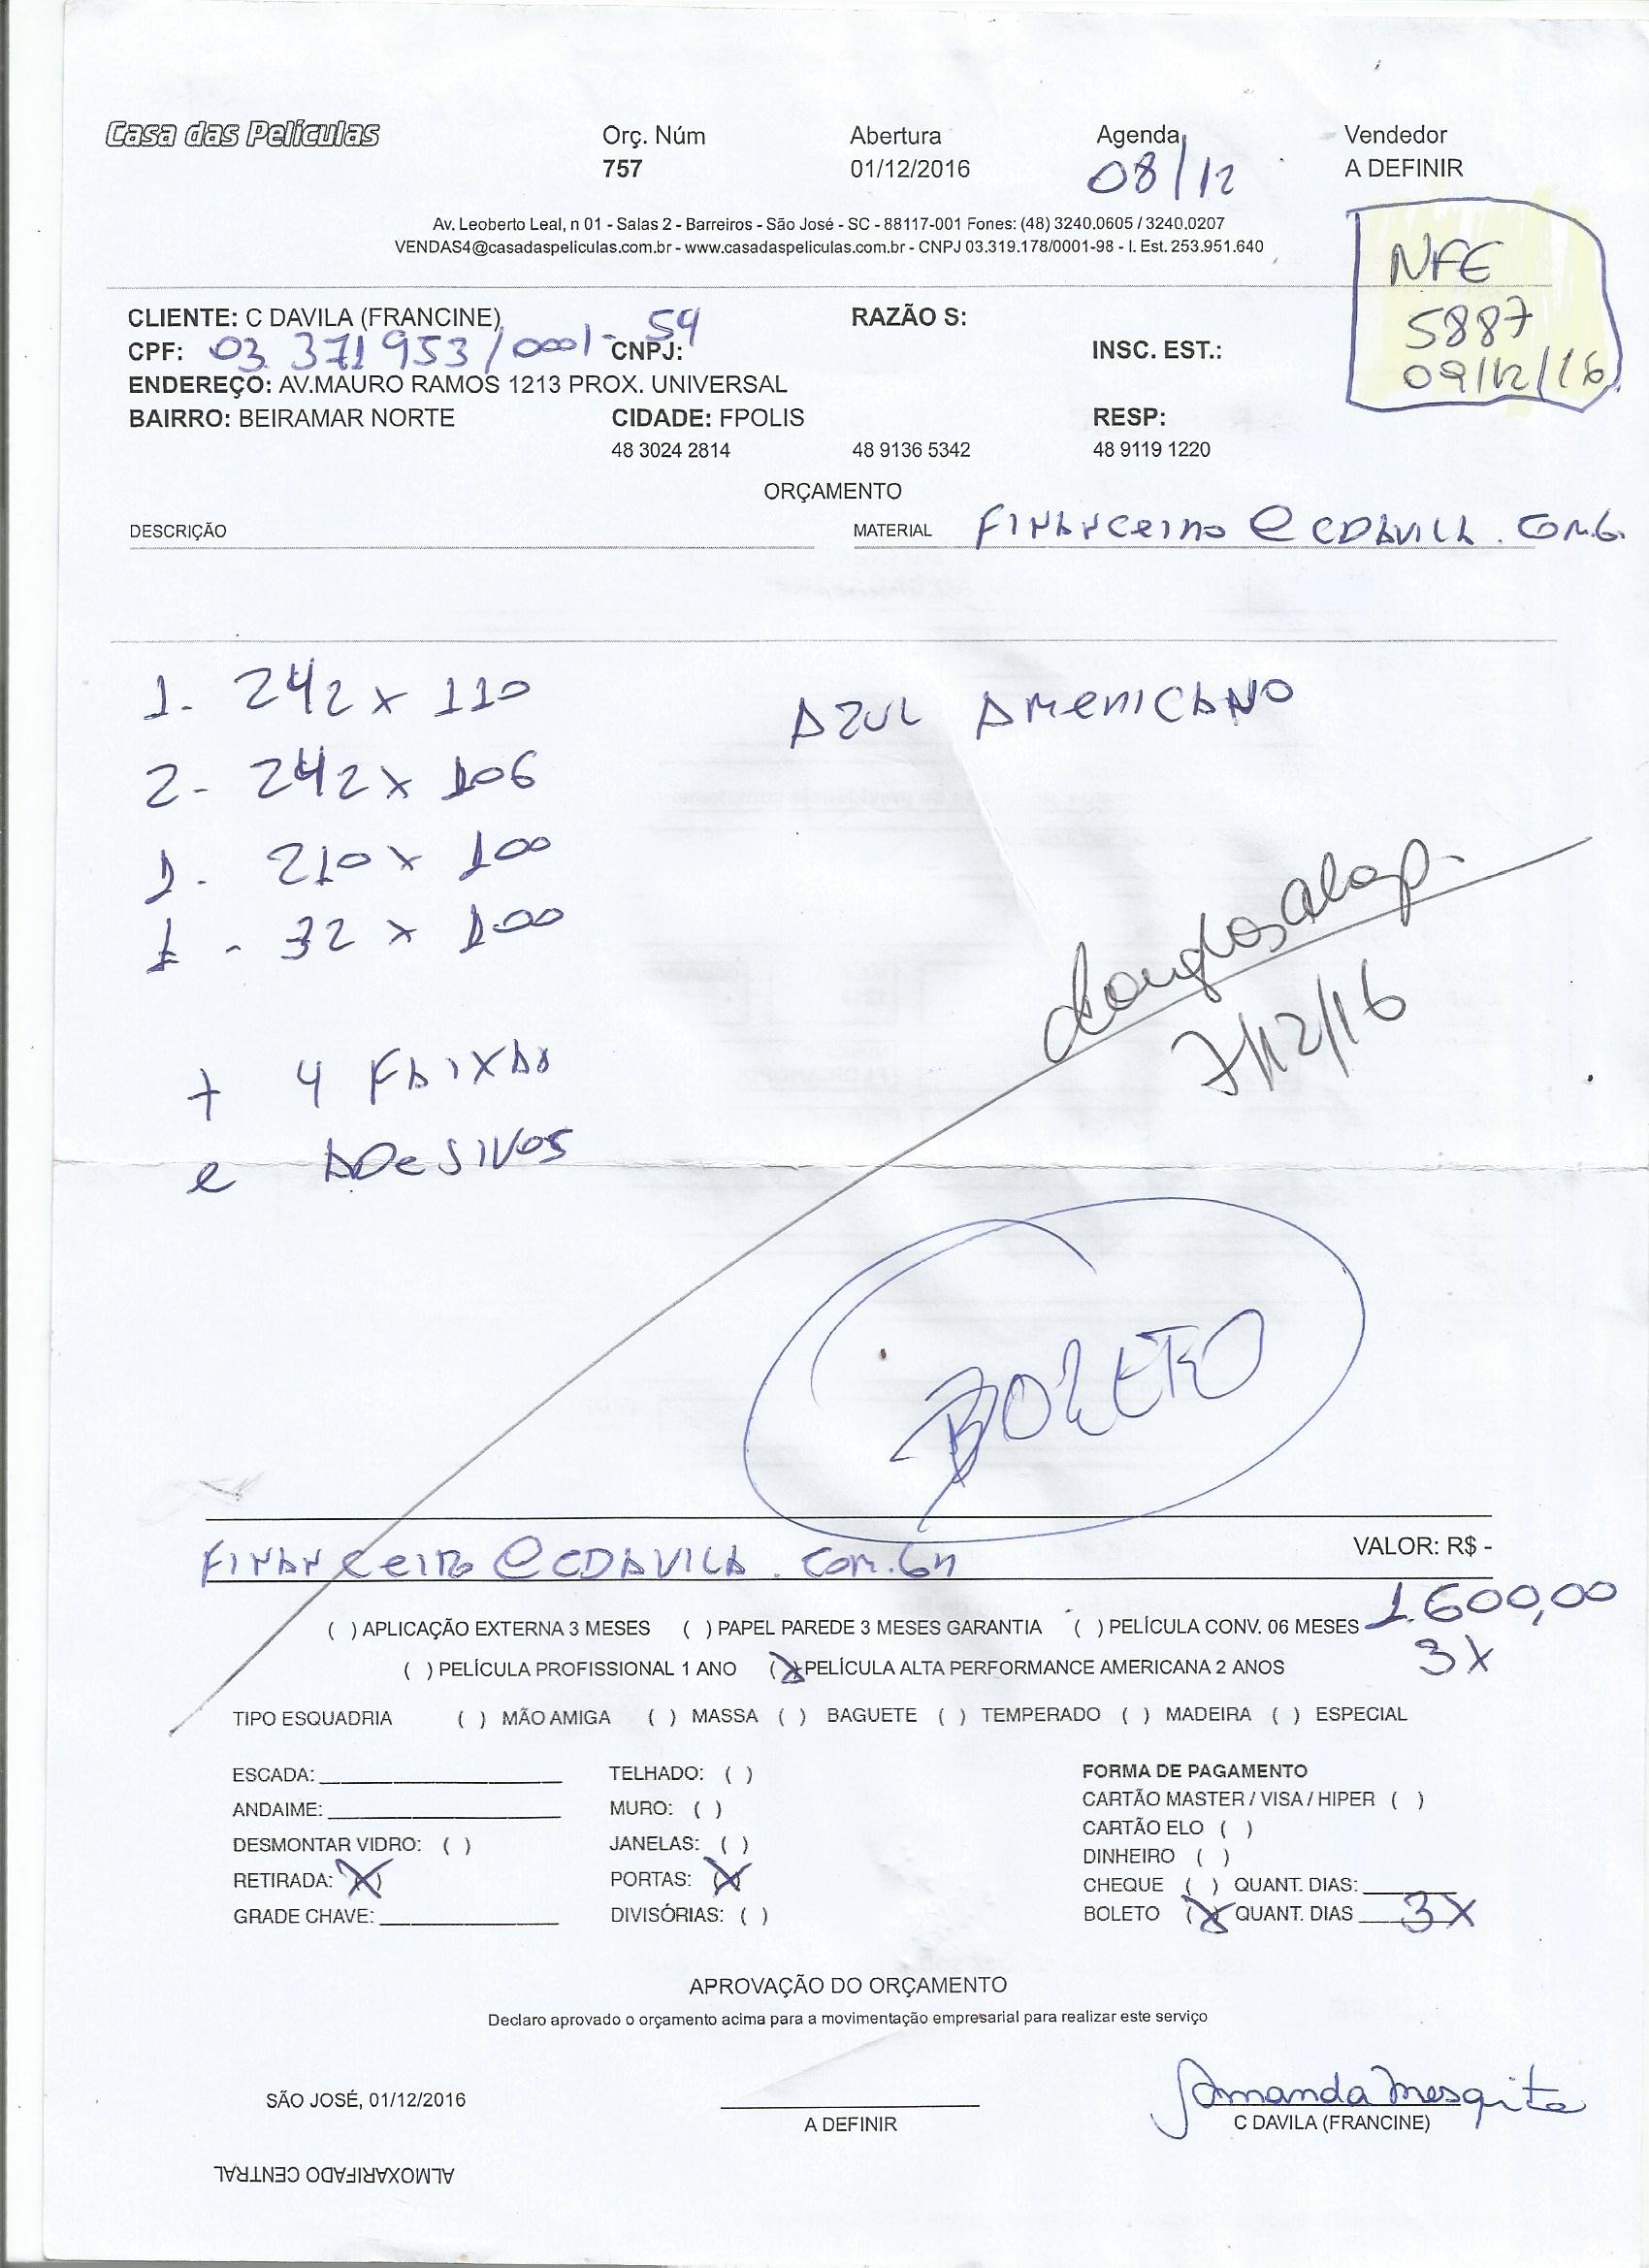 Casa das Películas
Orç. Núm Abertura Agenda Vendedor
757 01/12/2016 08/12 A DEFINIR
Av. Leoberto Leal, n 01 - Salas 2 - Barreiros - São José - SC - 88117-001 Fones: (48) 3240.0605 / 3240.0207
VENDAS4@casadaspeliculas.com.br - www.casadaspeliculas.com.br - CNPJ 03.319.178/0001-98 - I. Est. 253.951.640
NFE
5887
09/12/16
CLIENTE: C DAVILA (FRANCINE) RAZÃO S:
CPF: 03 371 953/0001-54 CNPJ: INSC. EST.:
ENDEREÇO: AV.MAURO RAMOS 1213 PROX. UNIVERSAL
BAIRRO: BEIRAMAR NORTE CIDADE: FPOLIS RESP:
48 3024 2814 48 9136 5342 48 9119 1220
ORÇAMENTO
DESCRIÇÃO MATERIAL FINANCEIRO@CDAVILA.COM.b
1- 242 x 110 AZUL AMERICANO
2- 242 x 106
1- 210 x 100
1 - 32 x 100
7/12/16
+ 4 FAIXAS
e ADESIVOS
BOLETO
VALOR: R$ -
FINANCEIRO@CDAVILA.COM.br
1.600,00
( ) APLICAÇÃO EXTERNA 3 MESES ( ) PAPEL PAREDE 3 MESES GARANTIA ( ) PELÍCULA CONV. 06 MESES
3X
( ) PELÍCULA PROFISSIONAL 1 ANO (X) PELÍCULA ALTA PERFORMANCE AMERICANA 2 ANOS
TIPO ESQUADRIA ( ) MÃO AMIGA ( ) MASSA ( ) BAGUETE ( ) TEMPERADO ( ) MADEIRA ( ) ESPECIAL
ESCADA: TELHADO: ( ) FORMA DE PAGAMENTO
ANDAIME: MURO: ( ) CARTÃO MASTER / VISA / HIPER ( )
DESMONTAR VIDRO: ( ) JANELAS: ( ) CARTÃO ELO ( )
DINHEIRO ( )
RETIRADA: (X) PORTAS: (X) CHEQUE ( ) QUANT. DIAS:
GRADE CHAVE: DIVISÓRIAS: ( ) BOLETO (X) QUANT. DIAS 3X
APROVAÇÃO DO ORÇAMENTO
Declaro aprovado o orçamento acima para a movimentação empresarial para realizar este serviço
SÃO JOSÉ, 01/12/2016
Amanda Mesqita
A DEFINIR C DAVILA (FRANCINE)
ALMOXARIFADO CENTRAL